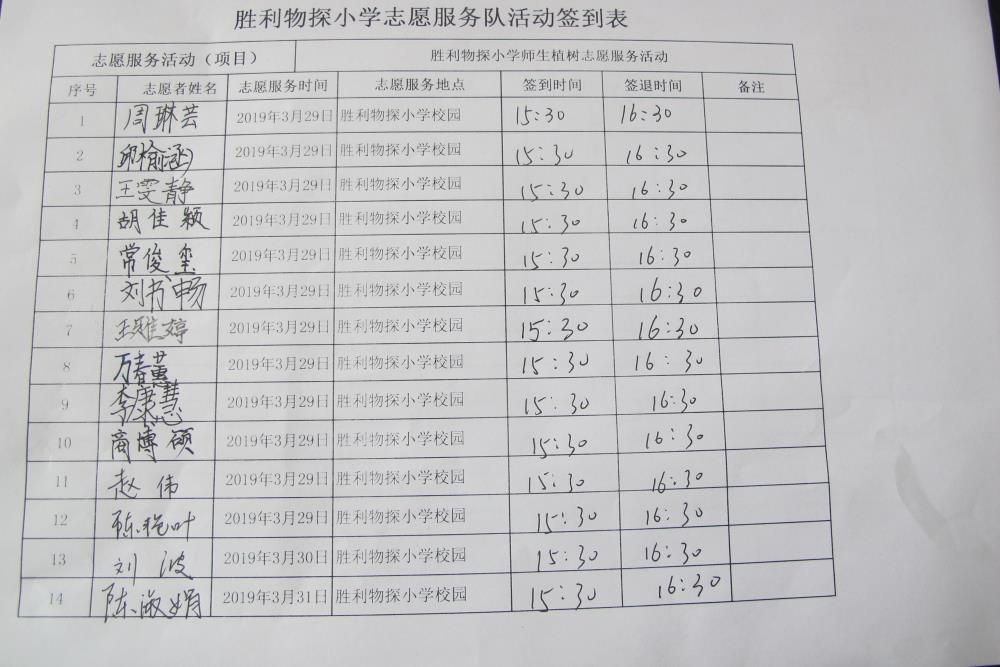 胜利物探小学志愿服务队活动签到表
志愿服务活动（项目） 胜利物探小学师生植树志愿服务活动
序号 志愿者姓名 志愿服务时间 志愿服务地点 签到时间 签退时间 备注
1 周琳芸 2019年3月29日 胜利物探小学校园 15:30 16:30
2 邱榆涵 2019年3月29日 胜利物探小学校园 15:30 16:30
3 王雯静 2019年3月29日 胜利物探小学校园 15:30 16:30
4 胡佳颖 2019年3月29日 胜利物探小学校园 15:30 16:30
5 常俊玺 2019年3月29日 胜利物探小学校园 15:30 16:30
6 刘书畅 2019年3月29日 胜利物探小学校园 15:30 16:30
7 王雅婷 2019年3月29日 胜利物探小学校园 15:30 16:30
8 万春蕙 2019年3月29日 胜利物探小学校园 15:30 16:30
9 李康慧 2019年3月29日 胜利物探小学校园 15:30 16:30
10 商博硕 2019年3月29日 胜利物探小学校园 15:30 16:30
11 赵伟 2019年3月29日 胜利物探小学校园 15:30 16:30
12 陈艳叶 2019年3月29日 胜利物探小学校园 15:30 16:30
13 刘波 2019年3月30日 胜利物探小学校园 15:30 16:30
14 陈淑娟 2019年3月31日 胜利物探小学校园 15:30 16:30